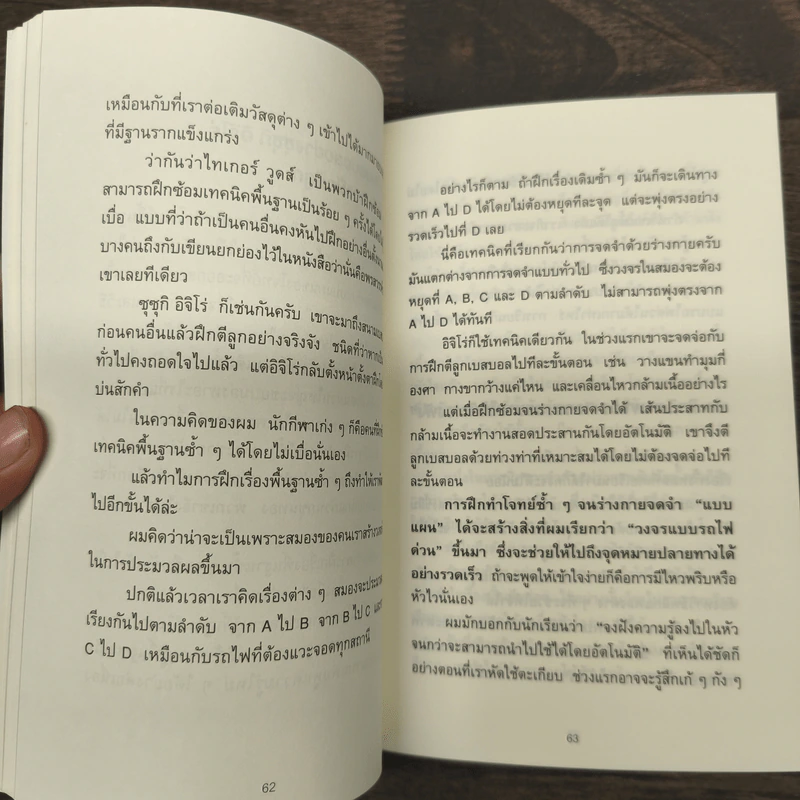 เหมือนกับที่เราต่อเติมวัสดุต่าง ๆ เข้าไปได้มากมาย
ที่มีฐานรากแข็งแกร่ง
ว่ากันว่าไทเกอร์ วูดส์ เป็นพวกบ้าฝึกซ้อม
สามารถฝึกซ้อมเทคนิคพื้นฐานเป็นร้อย ๆ ครั้งได้โดยไม่
เบื่อ แบบที่ว่าถ้าเป็นคนอื่นคงหันไปฝึกอย่างอื่นตั้ง
บางคนถึงกับเขียนยกย่องไว้ในหนังสือว่านั่นคือพรสวรรค์
เขาเลยทีเดียว
ซุซุกิ อิจิโร่ ก็เช่นกันครับ เขาจะมาถึงสนาม
ก่อนคนอื่นแล้วฝึกตีลูกอย่างจริงจัง ชนิดที่ว่าหาก
ทั่วไปคงถอดใจไปแล้ว แต่อิจิโร่กลับตั้งหน้าตั้งตาฝึก
บ่นสักคำ
ในความคิดของผม นักกีฬาเก่ง ๆ ก็คือคนที่
เทคนิคพื้นฐานซ้ำ ๆ ได้โดยไม่เบื่อนั่นเอง
แล้วทำไมการฝึกเรื่องพื้นฐานซ้ำ ๆ ถึงทำให้เรา
ไปอีกขั้นได้ล่ะ
ผมคิดว่าน่าจะเป็นเพราะสมองของคนเราสร้าง
ในการประมวลผลขึ้นมา
ปกติแล้วเวลาเราคิดเรื่องต่าง ๆ สมองจะ
เรียงกันไปตามลำดับ จาก A ไป B จาก B ไป C และ
C ไป D เหมือนกับรถไฟที่ต้องแวะจอดทุกสถานี
62
อย่างไรก็ตาม ถ้าฝึกเรื่องเดิมซ้ำ ๆ มันก็จะเดินทาง
จาก A ไป D ได้โดยไม่ต้องหยุดทีละจุด แต่จะพุ่งตรงอย่าง
รวดเร็วไปที่ D เลย
นี่คือเทคนิคที่เรียกกันว่าการจดจำด้วยร่างกายครับ
มันแตกต่างจากการจดจำแบบทั่วไป ซึ่งวงจรในสมองจะต้อง
หยุดที่ A, B, C และ D ตามลำดับ ไม่สามารถพุ่งตรงจาก
A ไป D ได้ทันที
อิจิโร่ก็ใช้เทคนิคเดียวกัน ในช่วงแรกเขาจะจดจ่อกับ
การฝึกตีลูกเบสบอลไปทีละขั้นตอน เช่น วางแขนทำมุมกี่
องศา กางขากว้างแค่ไหน และเคลื่อนไหวกล้ามเนื้ออย่างไร
แต่เมื่อฝึกซ้อมจนร่างกายจดจำได้ เส้นประสาทกับ
กล้ามเนื้อจะทำงานสอดประสานกันโดยอัตโนมัติ เขาจึงตี
ลูกเบสบอลด้วยท่วงท่าที่เหมาะสมได้โดยไม่ต้องจดจ่อไปที
ละขั้นตอน
การฝึกทำโจทย์ซ้ำ ๆ จนร่างกายจดจำ “แบบ
แผน” ได้จะสร้างสิ่งที่ผมเรียกว่า “วงจรแบบรถไฟ
ด่วน” ขึ้นมา ซึ่งจะช่วยให้ไปถึงจุดหมายปลายทางได้
อย่างรวดเร็ว ถ้าจะพูดให้เข้าใจง่ายก็คือการมีไหวพริบหรือ
หัวไวนั่นเอง
ผมมักบอกกับนักเรียนว่า “จงฝังความรู้ลงไปในหัว
จนกว่าจะสามารถนำไปใช้ได้โดยอัตโนมัติ” ที่เห็นได้ชัดก็
อย่างตอนที่เราหัดใช้ตะเกียบ ช่วงแรกอาจจะรู้สึกเก้ ๆ กัง ๆ
63